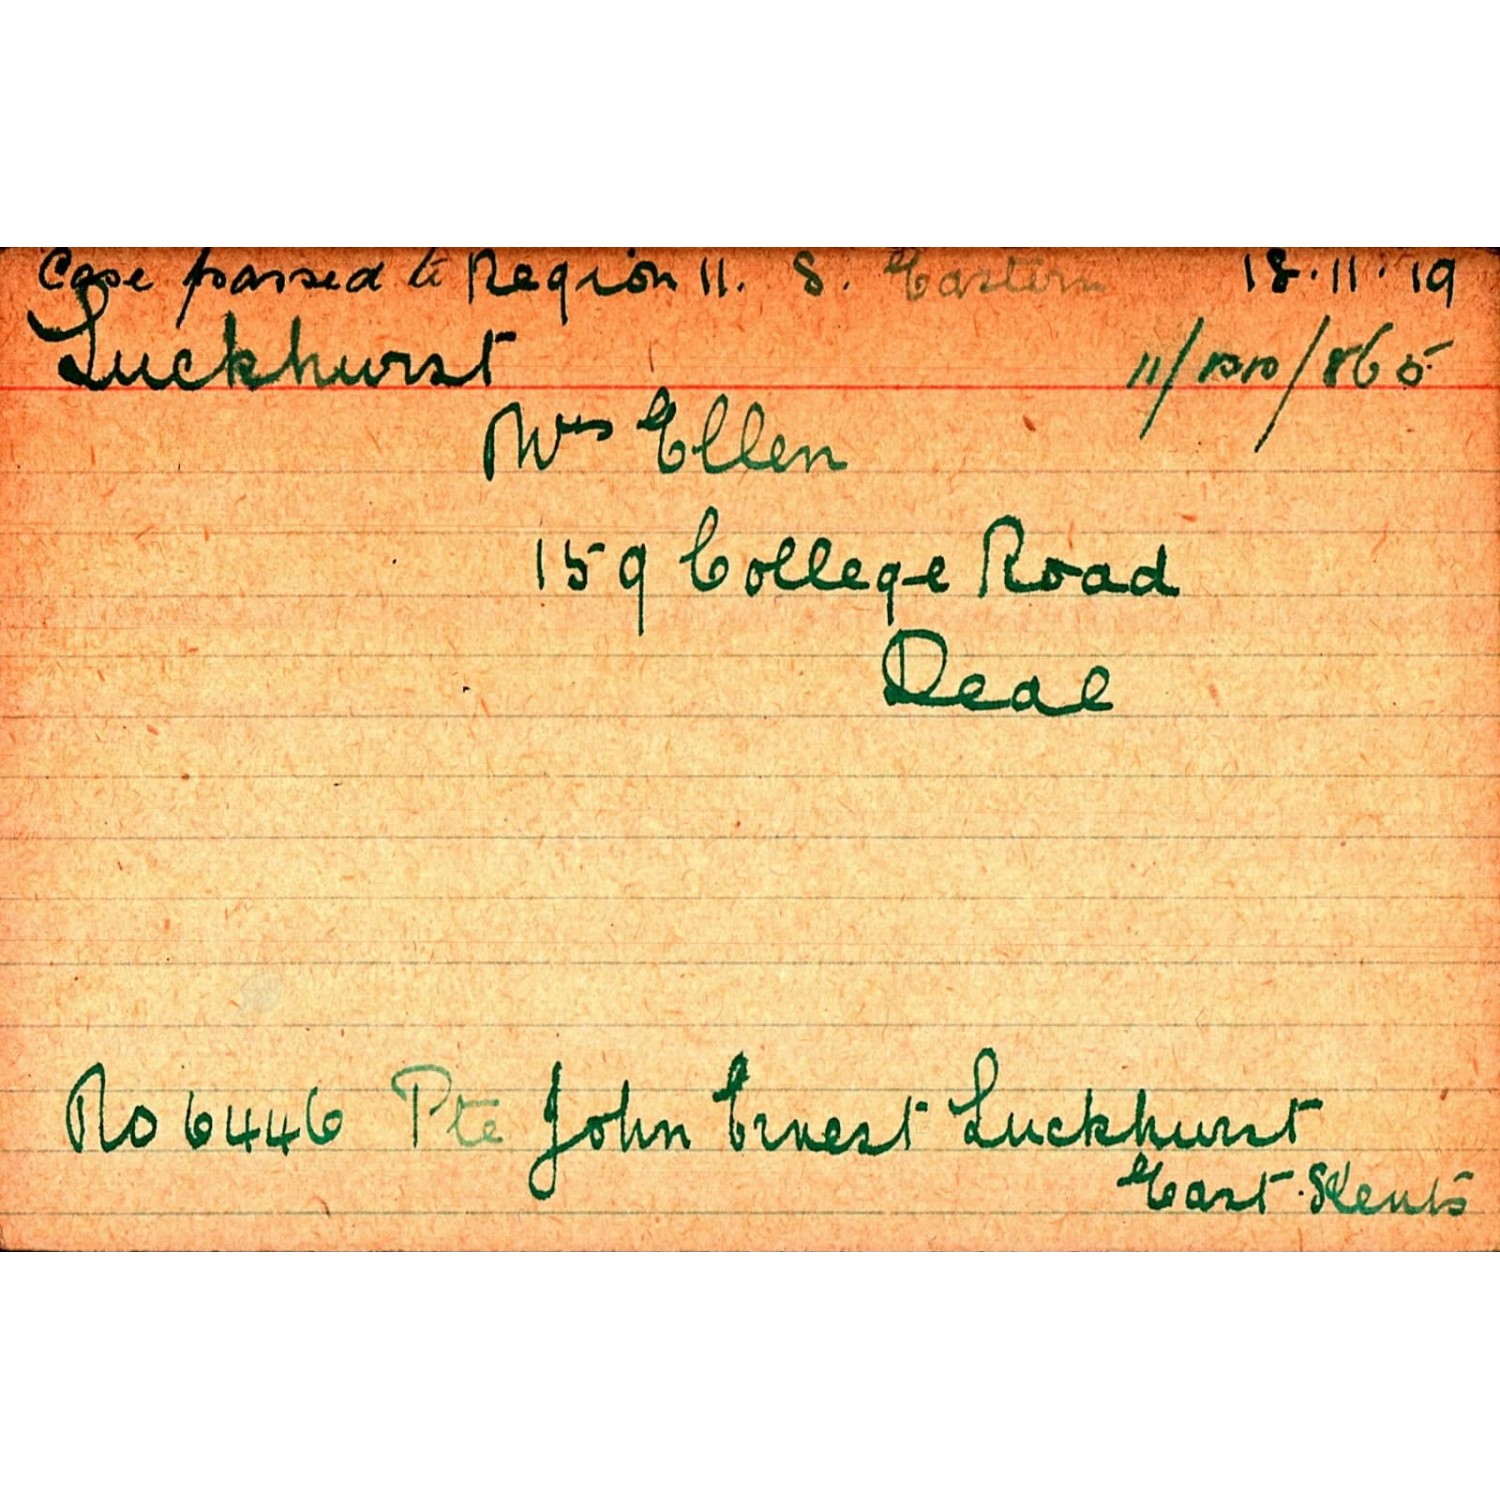 Case passed to Region 11. S. Eastern 18.11.19
Luckhurst
11/DD/865
Mrs Ellen
159 College Road
Deal
No 6446 Pte John Ernest Luckhurst
East Kents